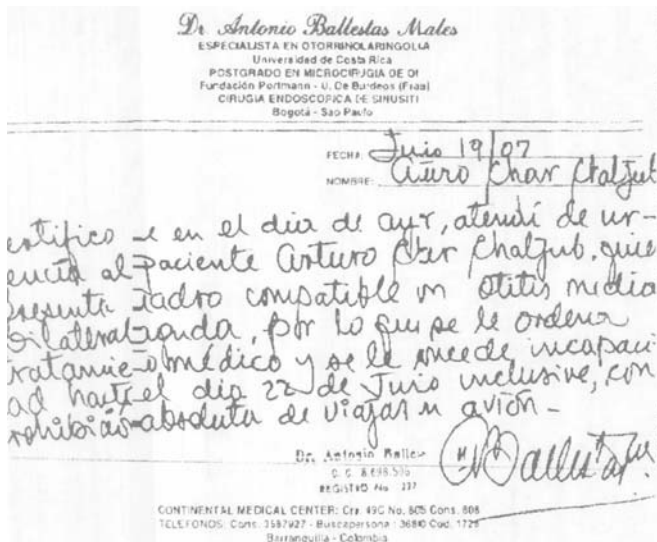 Dr. Antonio Ballestas Males
ESPECIALISTA EN OTORRINOLARINGOLOGIA
Universidad de Costa Rica
POSTGRADO EN MICROCIRUGIA DE OI
Fundación Portmann - U. De Burdeos (Fran)
CIRUGIA ENDOSCOPICA DE SINUSITI
Bogotá - Sao Paulo
FECHA: Junio 19/07
NOMBRE: Arturo Char Chaljub
ertifico e en el dia de ayer, atendí de ur-
encia al paciente Arturo Char Chaljub, quie
presenta adro compatible on otitis media
bilateral aguda, por lo que se le ordena
ratamie o médico y se le oncede incapaci
ad hasta el dia 22 de Junio inclusive, con
rohibición absoluta de viajar en avión -
Dr. Antonio Balles
C. C. 8.698.506
REGISTRO No 237
CONTINENTAL MEDICAL CENTER: Cra. 49C No. 80S Cons. 808
TELEFONOS: Cons. 3587927 - Buscapersona: 36810 Cod. 1729
Barranquilla - Colombia